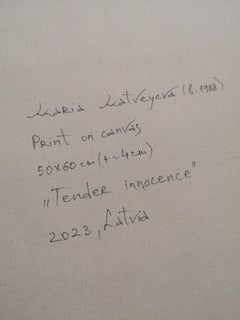 Maria Matveyeva (b. 1988)
Print on canvas
50x60 cm (+~4cm)
„Tender innocence"
2023, Latvia